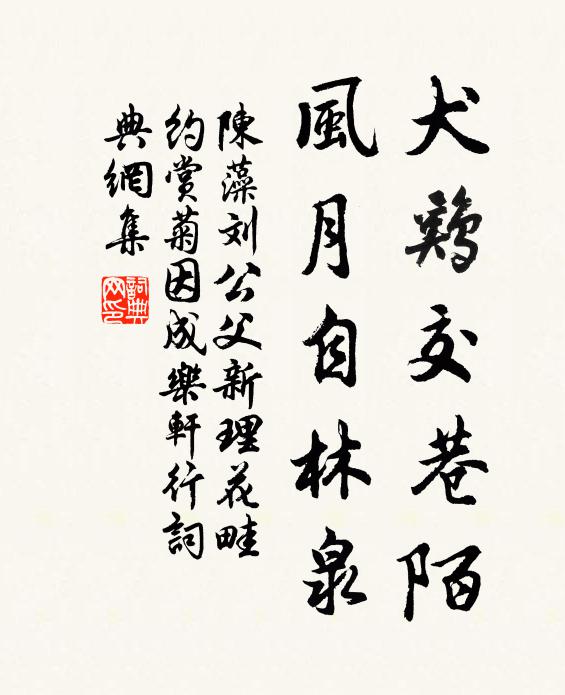 犬鷄交巷陌
風月自林泉
陳藻刘公父新理花畦
约赏菊因成樂軒行詞
典網集
詞典网印